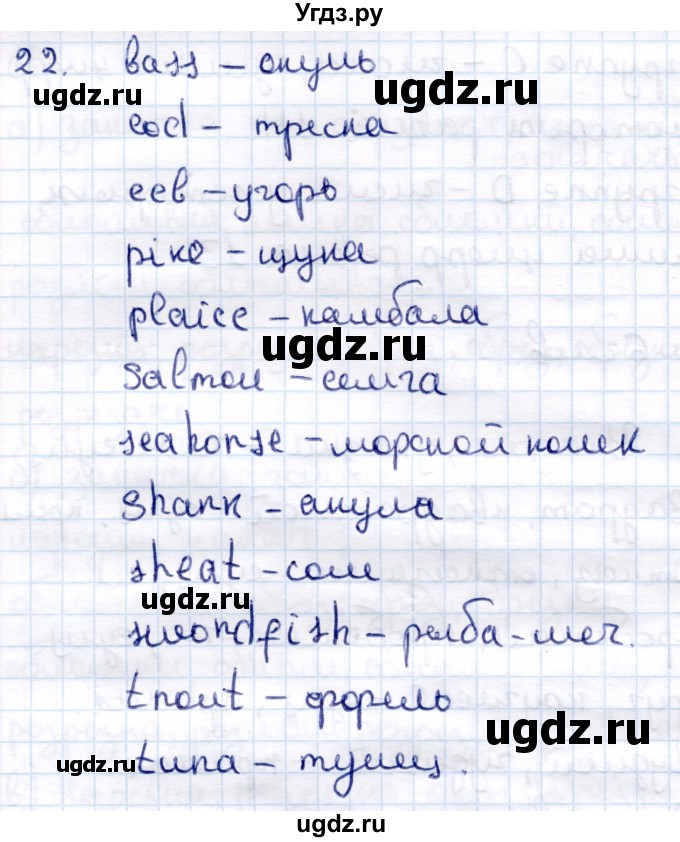 Угдз.ру
22. bass – окунь
ugdz.ru ugdz.ru
cod – треска
eel – угорь
ugdz.ru
pike – щука
plaice – камбала
ugdz.ru
salmon – семга
seahorse – морской конек
shark – акула
ugdz.ru
sheat – сом
ugdz.ru
swordfish – рыба-меч.
trout – форель
ugdz.ru
ugdz.ru tuna – тунец.
ugdz.ru